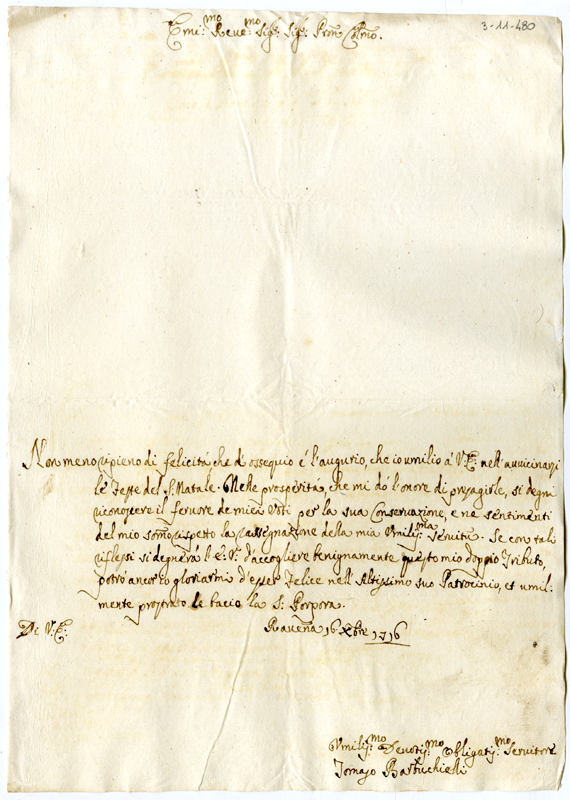 3-11-480
Emi:mo Reve:mo Sig:r Sig:r Pron Colmo.
Non meno ripieno di felicità, che di ossequio é l'augurio, che io umilio á V:E: nell'avvicinarsi
le Feste del S. Natale. Nelle prosperità, che mi dò l'onore di presagirle, si degni
riconoscere il fervore de miei Voti per la sua Conservazione, e ne sentimenti
del mio sommo rispetto la rassegnazione della mia Umiliss:ma servitù. Se con tali
riflessi si degnerà l'E:V: d'accogliere benignamente questo mio doppio Tributo,
potrò ancor io gloriarmi d'esser Felice nell'Altissimo suo Patrocinio, et umil:
mente prostrato le bacio la S: Porpora.
Di V:E:
Ravenna 16 Xbre 1716
Umiliss:mo Devotiss:mo Obligatiss:mo Servitore
Tomaso